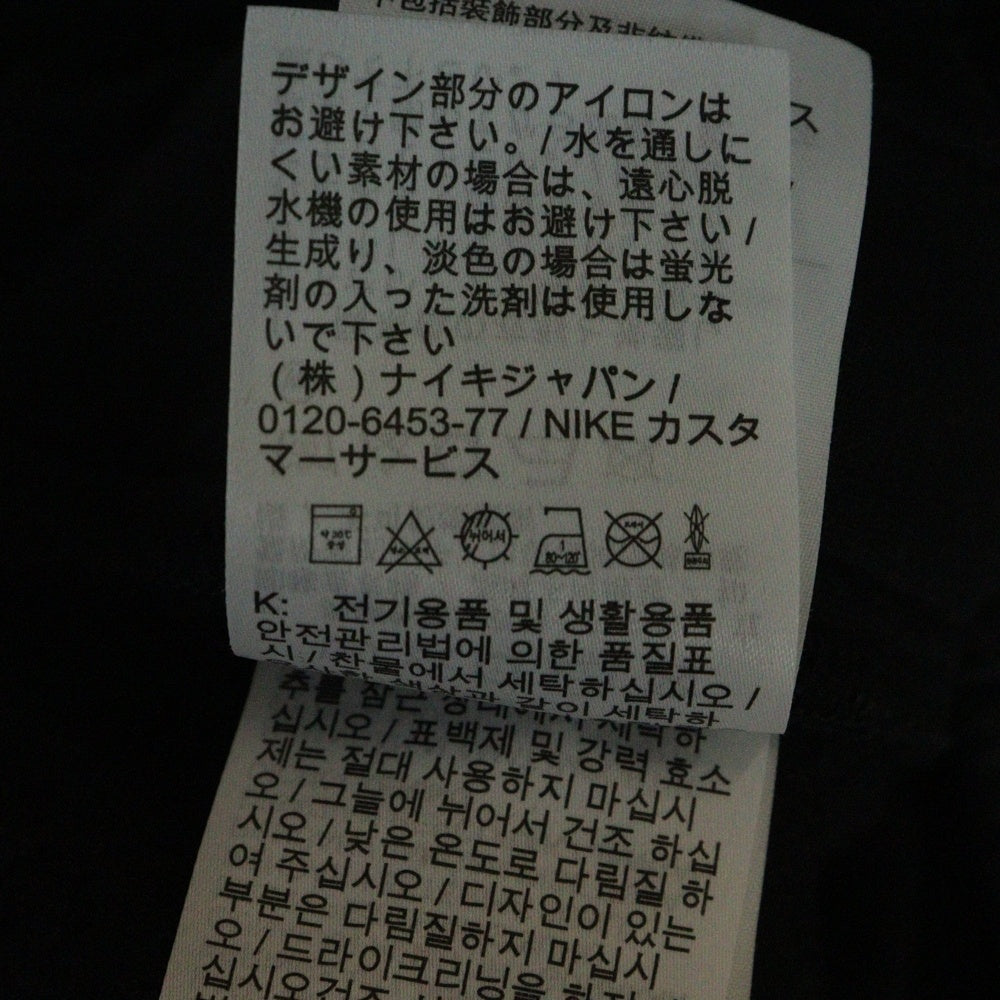 包括裝飾部分及非紡織
ス
デザイン部分のアイロンは
お避け下さい。/ 水を通しに
くい素材の場合は、遠心脱
水機の使用はお避け下さい /
生成り、淡色の場合は蛍光
剤の入った洗剤は使用しな
いで下さい
(株)ナイキジャパン /
0120-6453-77 / NIKE カスタ
マーサービス
약 30℃
중성
뉘어서
1
80~120℃
드라이
K: 전기용품 및 생활용품
안전관리법에 의한 품질표
시 / 찬물에서 세탁하십시오 /
비슷한 색상과 같이 세탁하
십시오 / 표백제 및 강력 효소
제는 절대 사용하지 마십시
오 / 그늘에 뉘어서 건조 하십
시오 / 낮은 온도로 다림질 하
여 주십시오 / 디자인이 있는
부분은 다림질하지 마십시
오 / 드라이크리닝을 하지
십시오건조